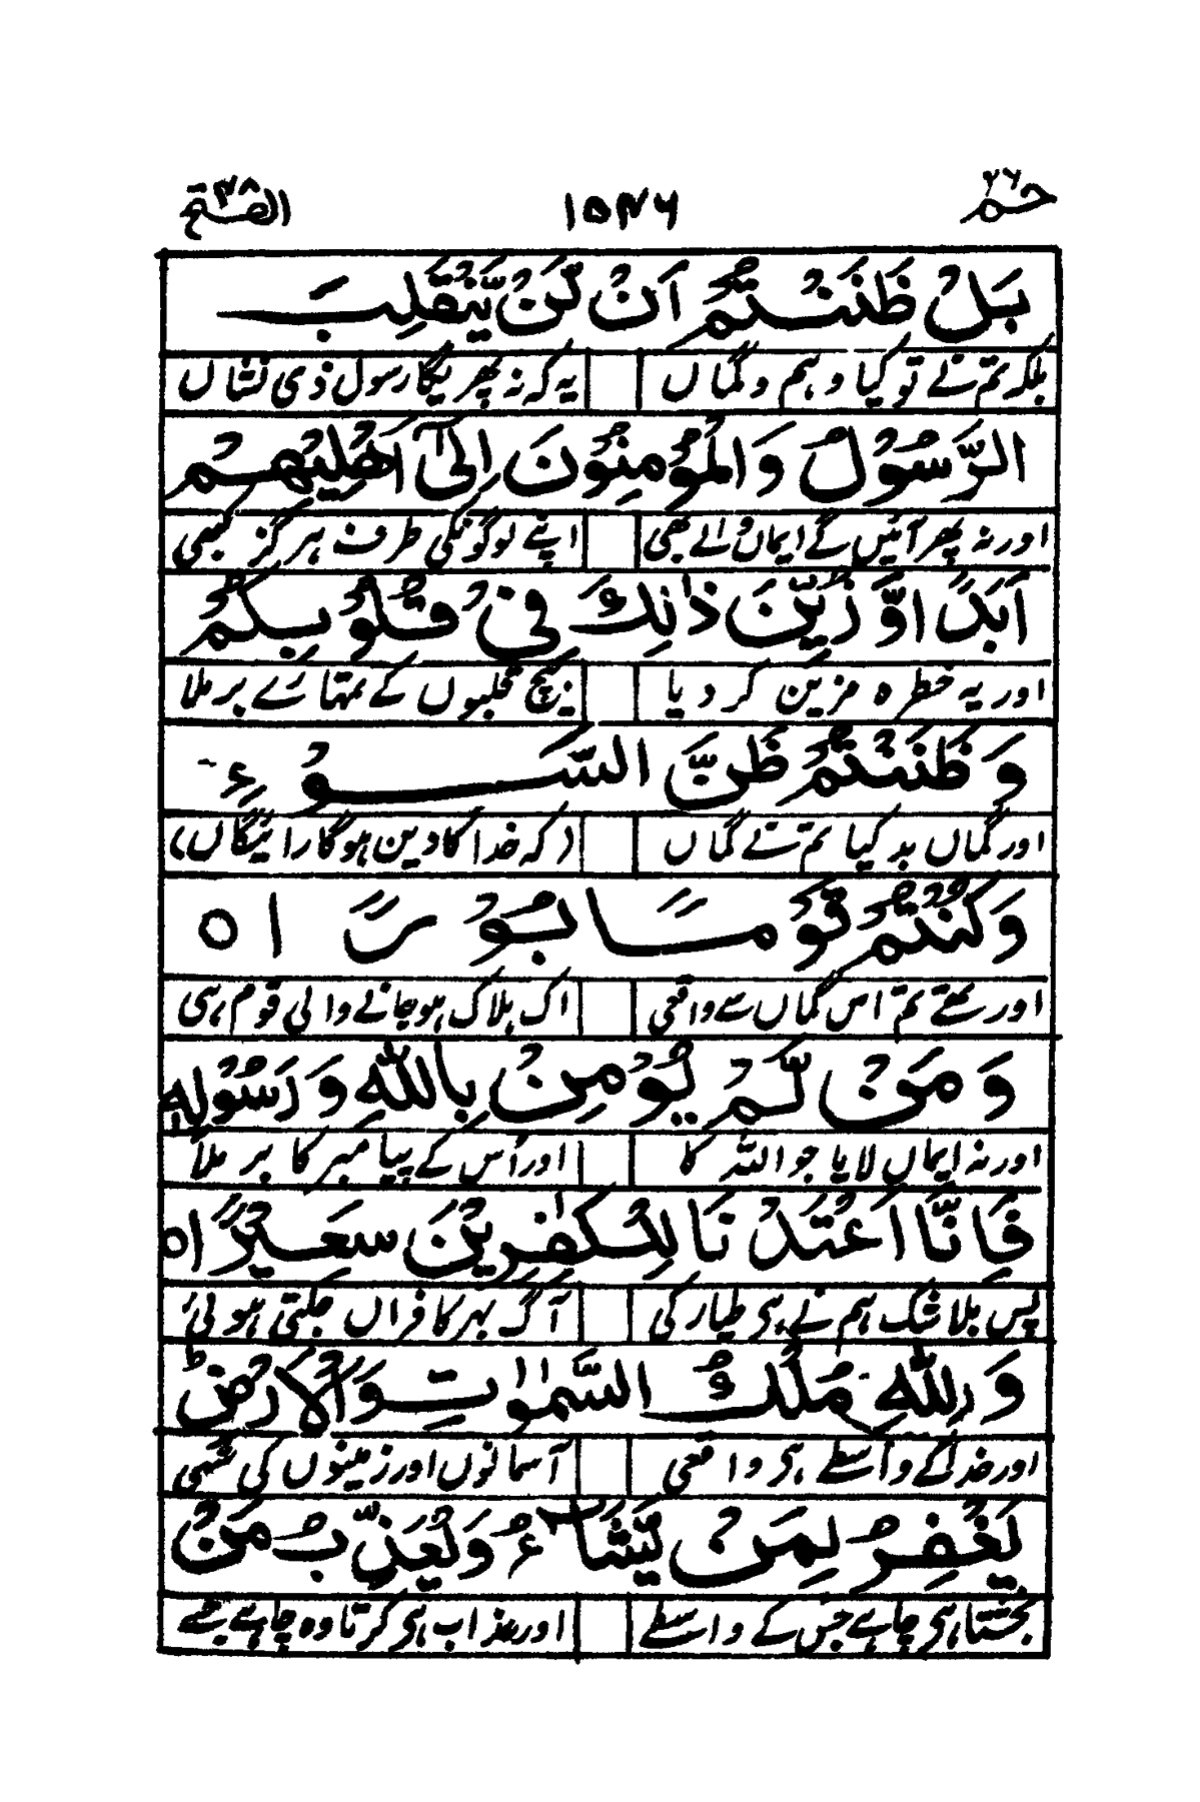 حٰمٓ ۲۶ ۱۵۴۶ الفتح ۴۸
بَلْ ظَنَنْتُمْ اَنْ لَّنْ یَّنْقَلِبَ
بلکہ تم نے تو کیا وہم و گماں یہ کہ نہ پھریگا رسول ذی نشاں
الرَّسُوْلُ وَالْمُؤْمِنُوْنَ اِلٰۤی اَهْلِیْهِمْ
اور نہ پھر آئیں گے ایماں والے بھی اپنے لوگونکی طرف ہرگز کبھی
اَبَدًا وَّ زُیِّنَ ذٰلِكَ فِیْ قُلُوْبِكُمْ
اور یہ خطرہ مزین کر دیا بیچ قلبوں کے تمہارے برملا
وَ ظَنَنْتُمْ ظَنَّ السَّوْءِ
اور گماں بد کیا تم نے گماں (کہ خدا کا دین ہوگا رائیگاں)
وَ كُنْتُمْ قَوْمًا بُوْرًا ۝
اور تھے تم اس گماں سے واقعی اک ہلاک ہو جانے والی قوم ہی
وَ مَنْ لَّمْ یُؤْمِنْ بِاللّٰهِ وَ رَسُوْلِهٖ
اور نہ ایماں لایا جو اللہ کا اور اُس کے پیامبر کا برملا
فَاِنَّاۤ اَعْتَدْنَا لِلْكٰفِرِیْنَ سَعِیْرًا ۝
پس بلا شک ہم نے ہی طیار کی آگ بہر کافراں جلتی ہوئی
وَ لِلّٰهِ مُلْكُ السَّمٰوٰتِ وَ الْاَرْضِ ط
اور خدا کے واسطے ہی واقعی آسمانوں اور زمینوں کی شہی
یَغْفِرُ لِمَنْ یَّشَآءُ وَ یُعَذِّبُ مَنْ
بخشتا ہی چاہے جس کے واسطے اور عذاب ہی کرتا وہ چاہے جسے